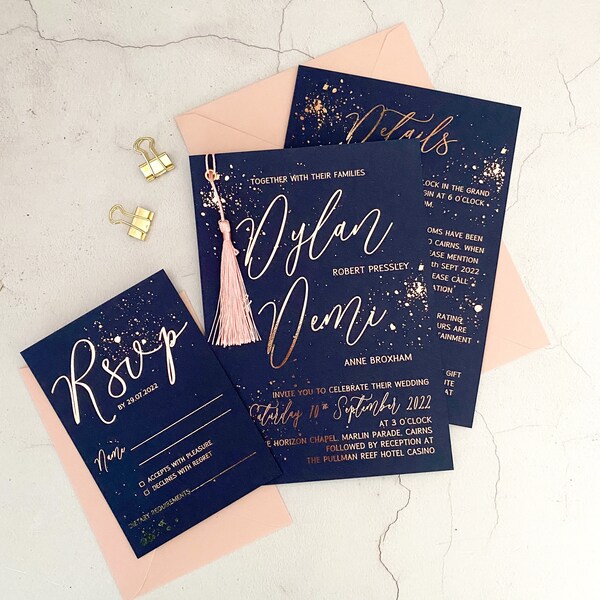 TOGETHER WITH THEIR FAMILIES
Dylan
ROBERT PRESSLEY
Demi
ANNE BROXHAM
INVITE YOU TO CELEBRATE THEIR WEDDING
Saturday 10th September 2022
AT 3 O'CLOCK
HORIZON CHAPEL, MARLIN PARADE, CAIRNS
FOLLOWED BY RECEPTION AT
THE PULLMAN REEF HOTEL CASINO
Rsvp
BY 29.07.2022
Name
ACCEPTS WITH PLEASURE
DECLINES WITH REGRET
DIETARY REQUIREMENTS
Details
IN THE GRAND
6 O'CLOCK
HAVE BEEN
CAIRNS. WHEN
MENTION
SEPT 2022
CALL
GIFT